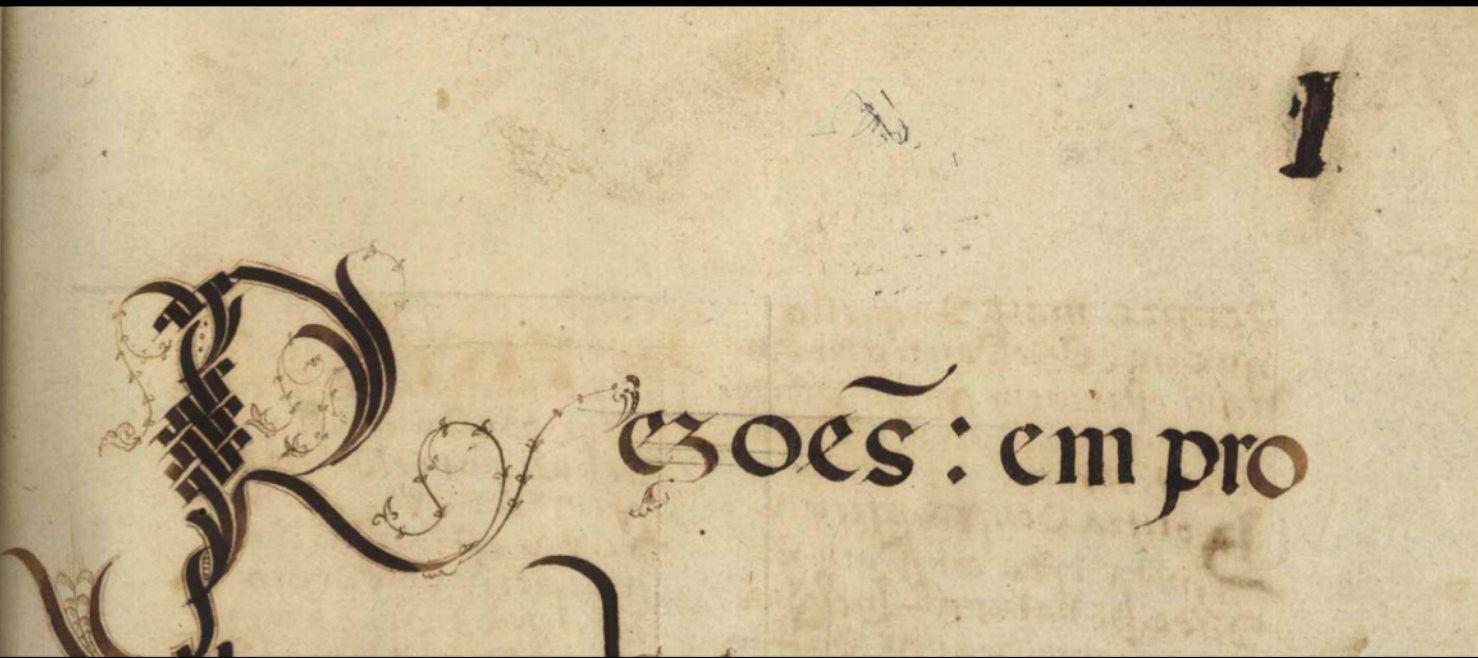 1
Rezoẽs: em pro